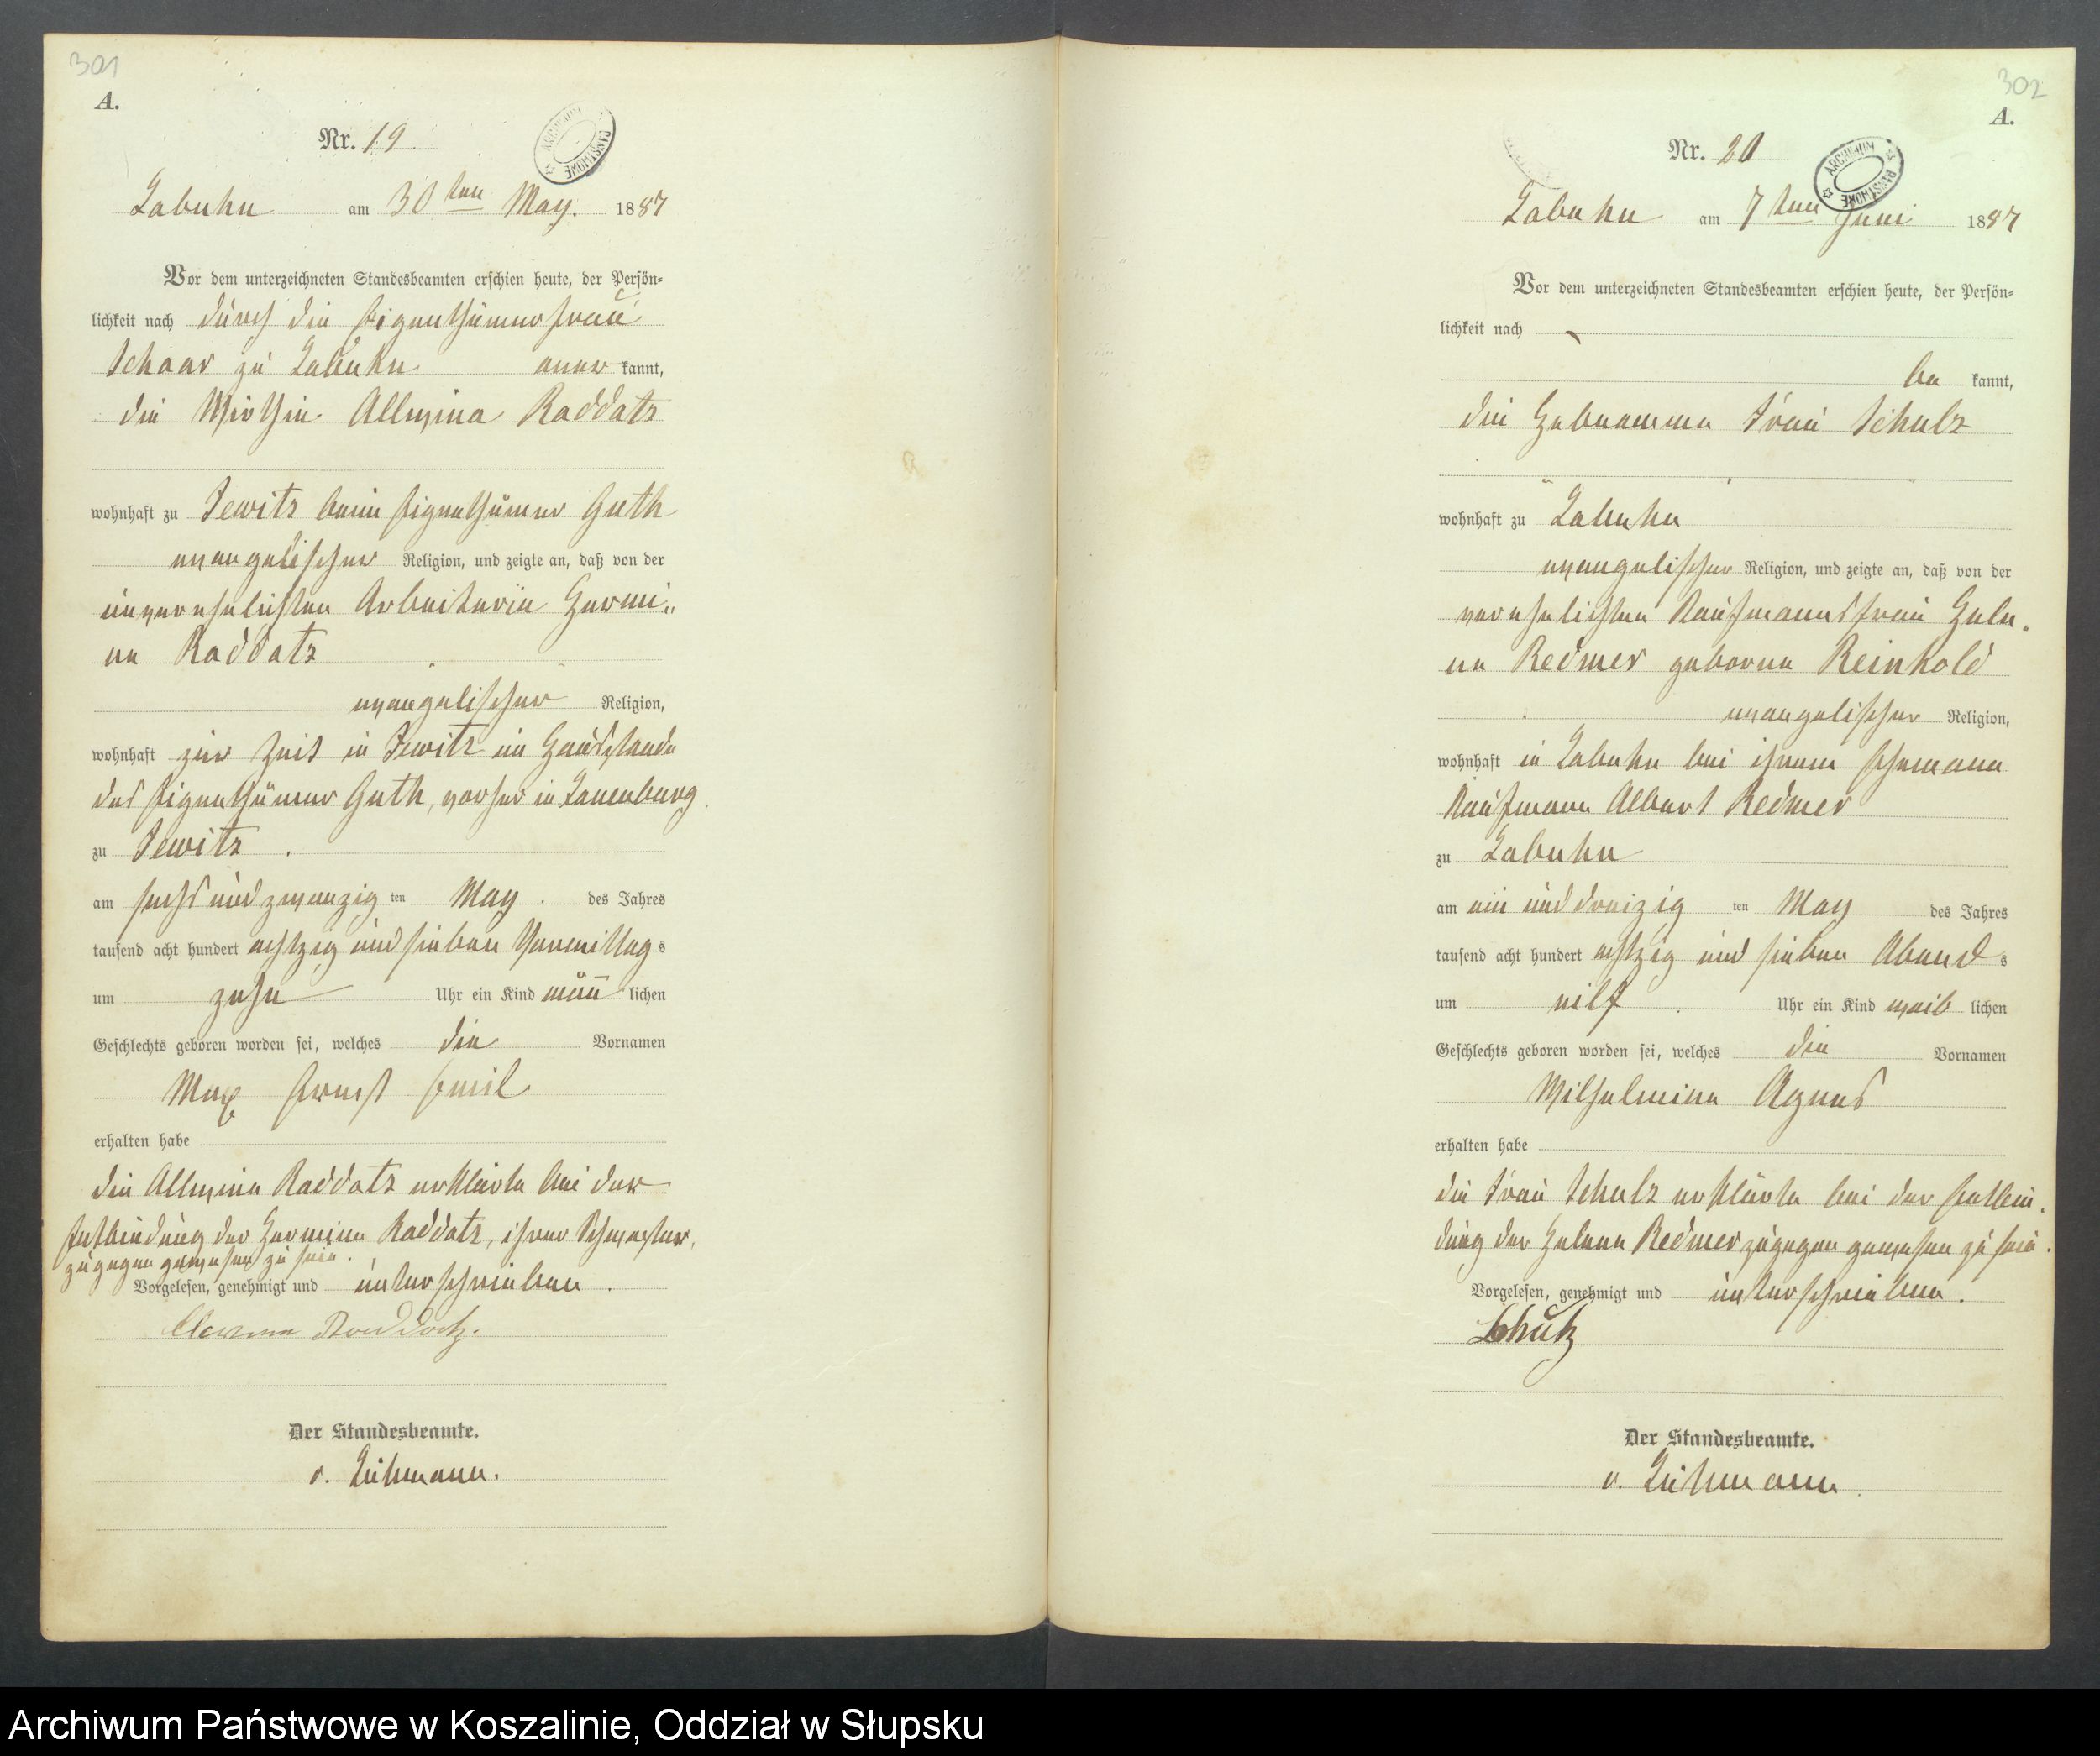 301
A.
Nr. 19.
Labuhn am 30ten May. 1887
Vor dem unterzeichneten Standesbeamten erschien heute, der Persön-
lichkeit nach durch die Eigenthümerfrau
Schaar zu Labuhn anerkannt,
die Raddatz
wohnhaft zu Jewitz beim Eigenthümer Guth
evangelischer Religion, und zeigte an, daß von der
unverehelichten Arbeiterin Hermi„
ne Raddatz
evangelischer Religion,
wohnhaft zur Zeit in Jewitz im Hausstande
des Eigenthümer Guth, vorher in Lauenburg.
zu Jewitz.
am sechs und zwanzig ten May. des Jahres
tausend acht hundert achtzig und sieben Vormittags
um zehn Uhr ein Kind männlichen
Geschlechts geboren worden sei, welches die Vornamen
Max Ernst Emil
erhalten habe
die Raddatz erklärte bei der
Entbindung der Hermine Raddatz, ihrer Schwester,
zugegen gewesen zu sein.
Vorgelesen, genehmigt und unterschrieben.
Raddatz.
Der Standesbeamte.
v.
302
A.
Nr. 20
Labuhn am 7ten Juni 1887
Vor dem unterzeichneten Standesbeamten erschien heute, der Persön-
lichkeit nach
bekannt,
die Hebeamme Frau Schulz
wohnhaft zu Labuhn
evangelischer Religion, und zeigte an, daß von der
verehelichten Kaufmannsfrau Hele-
ne Redmer geborne Reinhold
evangelischer Religion,
wohnhaft in Labuhn bei ihrem Ehemann
Kaufmann Albert Redmer
zu Labuhn
am ein und dreizig ten May des Jahres
tausend acht hundert achtzig und sieben Abends
um eilf Uhr ein Kind weiblichen
Geschlechts geboren worden sei, welches die Vornamen
Wilhelmine Agnes
erhalten habe
die Frau Schulz erklärte bei der Entbin-
dung der Helene Redmer zugegen gewesen zu sein.
Vorgelesen, genehmigt und unterschrieben.
Schulz
Der Standesbeamte.
v.
Archiwum Państwowe w Koszalinie, Oddział w Słupsku